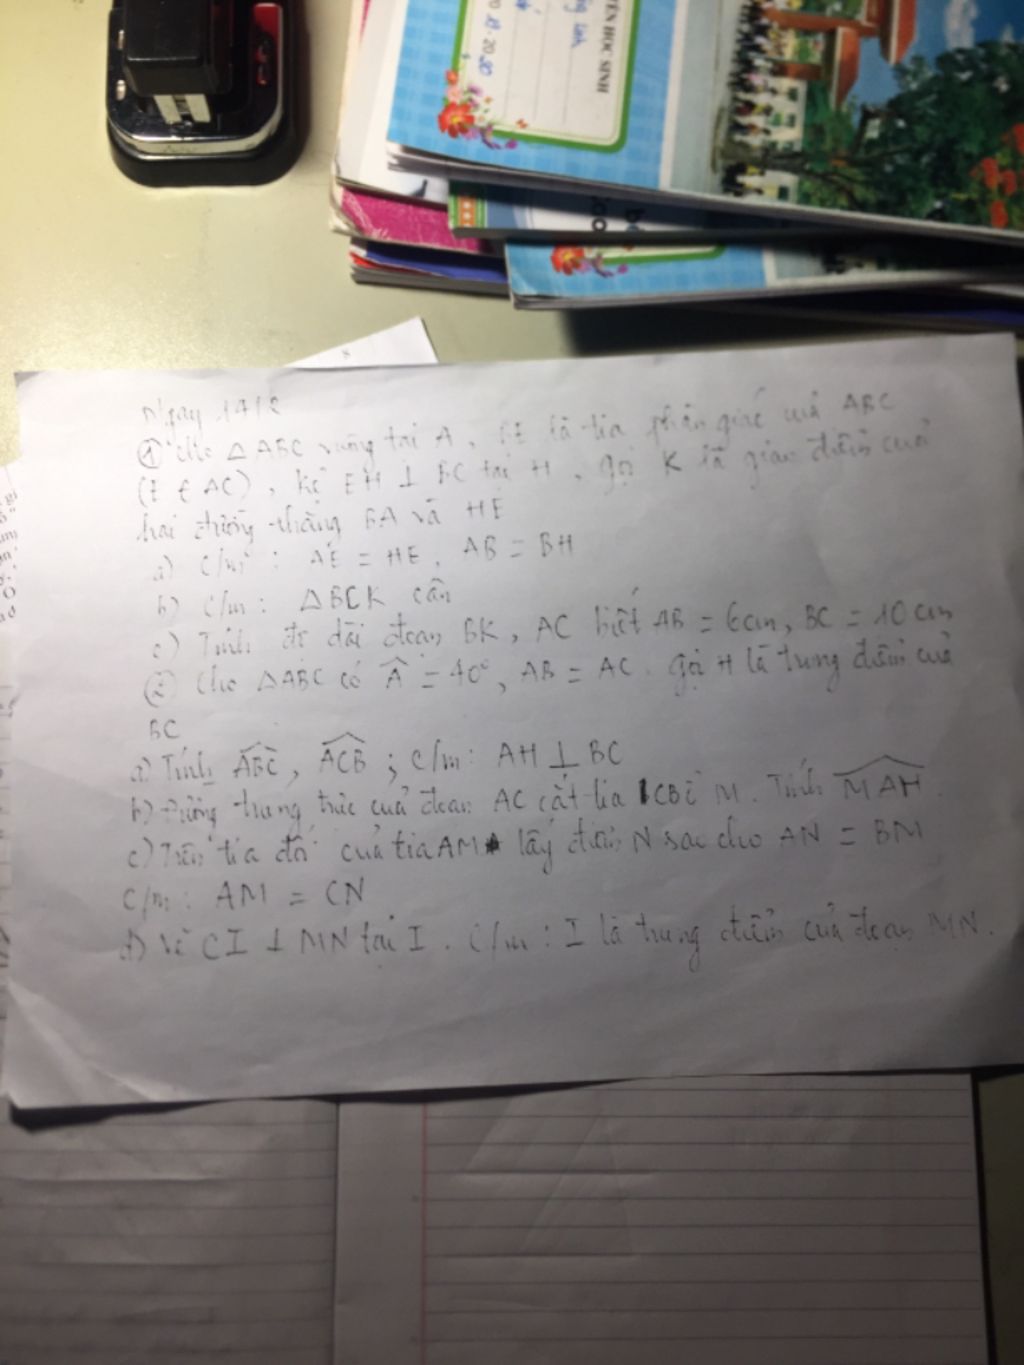 YỀN HỌC SINH
Ngày 14/2
① Cho △ABC vuông tại A, BE là tia phân giác của ABC
(E ∈ AC), kẻ EH ⊥ BC tại H, gọi K là giao điểm của
hai đường thẳng BA và HE
a) C/m: AE = HE, AB = BH
b) C/m: △BCK cân
c) Tính độ dài đoạn BK, AC biết AB = 6cm, BC = 10cm
② Cho △ABC có Â = 40°, AB = AC. Gọi H là trung điểm của
BC
a) Tính ABC, ACB; C/m: AH ⊥ BC
b) Đường trung trực của đoạn AC cắt tia CB ở M. Tính MAH.
c) Trên tia đối của tia AM lấy điểm N sao cho AN = BM
C/m: AM = CN
d) Vẽ CI ⊥ MN tại I. C/m: I là trung điểm của đoạn MN.